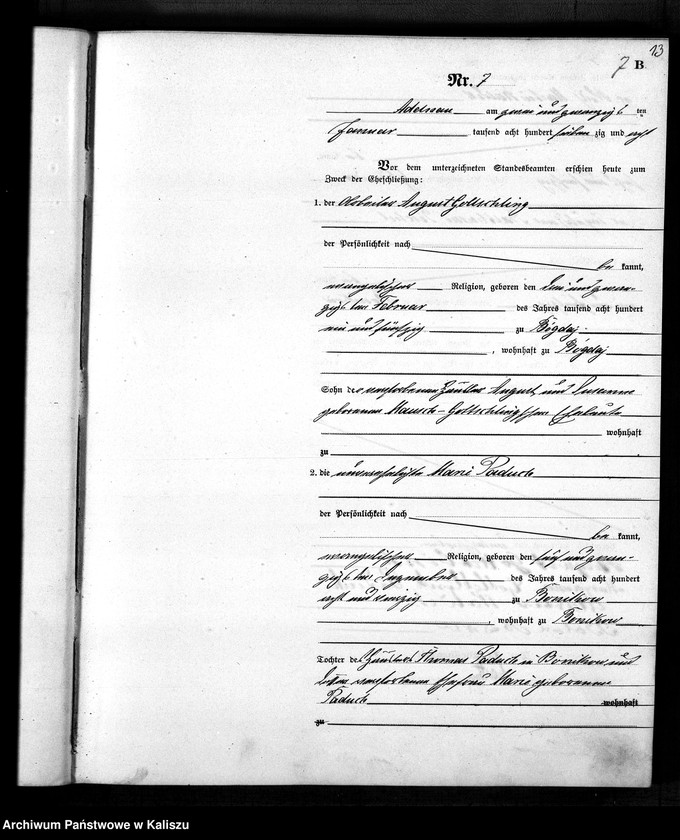 13
7 B.
Nr. 7
Adelnau am zwei und zwanzigsten
Januar tausend acht hundert sieben zig und acht
Vor dem unterzeichneten Standesbeamten erschien heute zum
Zweck der Eheschließung:
1. der Arbeiter August Gottschling
der Persönlichkeit nach
be kannt,
evangelischer Religion, geboren den
zigsten Februar des Jahres tausend acht hundert
und fünfzig zu Bogdaj
, wohnhaft zu Bogdaj
Sohn des verstorbenen Häusler August und Susanna
geborenen Gottschlingschen Eheleute
wohnhaft
zu
2. die unverehelichte Marie Paduch
der Persönlichkeit nach
be kannt,
evangelischer Religion, geboren den fünf und zwan-
zigsten Dezember des Jahres tausend acht hundert
acht und vierzig zu Bonikow
, wohnhaft zu Bonikow
Tochter des Häuslers Thomas Paduch in Bonikow und
verstorbenen Ehefrau Marie geborenen
Paduch wohnhaft
zu
Archiwum Państwowe w Kaliszu